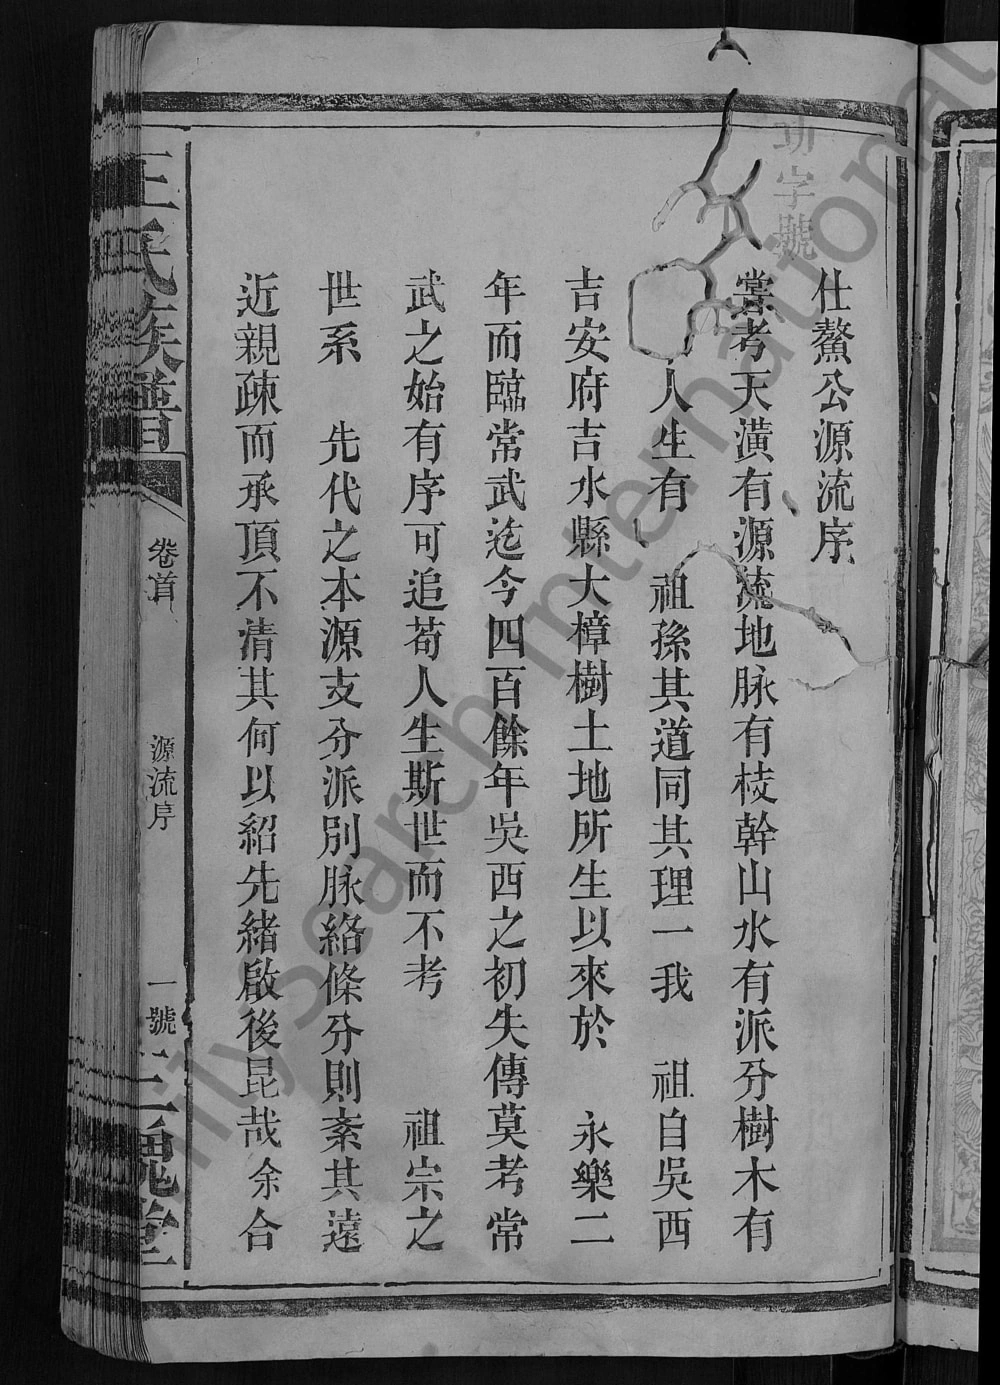 功字號
仕鰲公源流序
嘗考天潢有源流地脉有枝幹山水有派分樹木有
人生有 祖孫其道同其理一我 祖自吳西
吉安府吉水縣大樟樹土地所生以來於 永樂二
年而臨常武迄今四百餘年吳西之初失傳莫考常
武之始有序可追苟人生斯世而不考 祖宗之
世系 先代之本源支分派別脉絡條分則紊其遠
近親疎而承頂不清其何以紹先緒啟後昆哉余合
王氏族譜
卷首
源流序
一號
三槐堂
FamilySearch International